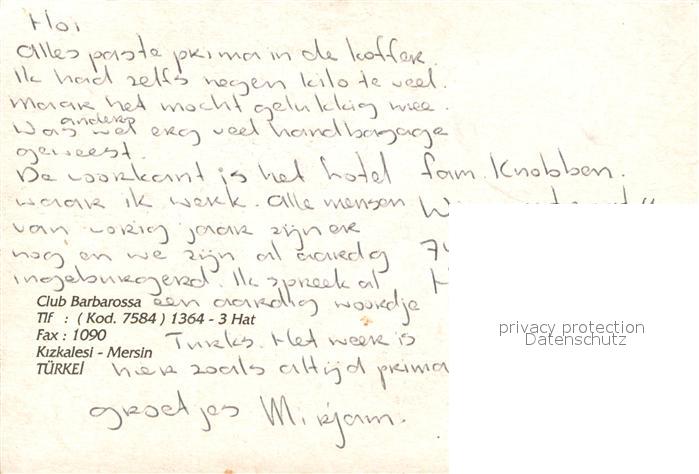 Hoi
alles paste prima in de koffer.
Ik had zelfs negen kilo te veel.
maar het mocht gelukkig mee.
anders
Was wel erg veel handbagage
geweest.
De voorkant is het hotel
waar ik werk. alle mensen
van vorig jaar zijn er
nog en we zijn al aardig
ingeburgerd. Ik spreek al
een aardig woordje
Turks. Het weer is
hier zoals altijd prima
groetjes Mirjam.
fam. Knobben.
Club Barbarossa
Tlf : ( Kod. 7584 ) 1364 - 3 Hat
Fax : 1090
Kızkalesi - Mersin
TÜRKEİ
privacy protection
Datenschutz